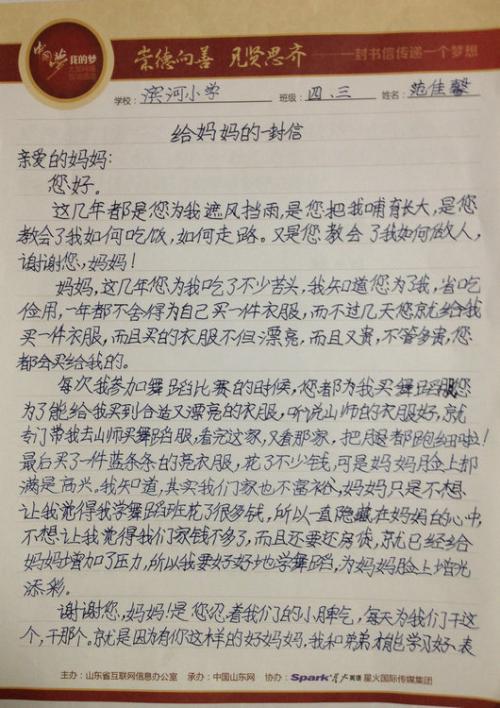 中国梦 我的梦
崇德向善 见贤思齐 —— 一封书信传递一个梦想
学校：滨河小学 班级：四.三 姓名：范佳馨
给妈妈的一封信
亲爱的妈妈：
您好。
这几年都是您为我遮风挡雨，是您把我哺育长大，是您
教会了我如何吃饭，如何走路。又是您教会了我如何做人，
谢谢您，妈妈！
妈妈，这几年您为我吃了不少苦头，我知道您为了我，省吃
俭用，一年都不舍得为自己买一件衣服，而不过几天您就给我
买一件衣服，而且买的衣服不但漂亮，而且又贵，不管多贵，您
都会买给我的。
每次我参加舞蹈比赛的时候，您都为我买舞蹈服您
为了能给我买到合适又漂亮的衣服，听说山师的衣服好，就
专门带我去山师买舞蹈服，看完这家，又看那家，把腿都跑细啦！
最后买了一件蓝条条的亮衣服，花了不少钱，可是妈妈脸上却
满是高兴。我知道，其实我们家也不富裕，妈妈只是不想
让我觉得我学舞蹈班花了很多钱，所以一直隐藏在妈妈的心中，
不想让我觉得我们家钱不多了，而且还要还房贷，就已经给
妈妈增加了压力，所以我要好好地学舞蹈，为妈妈脸上增光
添彩。
谢谢您，妈妈！是您忍着我们的小脾气，每天为我们干这
个，干那个。就是因为有你这样的好妈妈，我和弟弟才能学习好、表
主办：山东省互联网信息办公室 承办：中国山东网 协办：Spark 星火英语 星火国际传媒集团